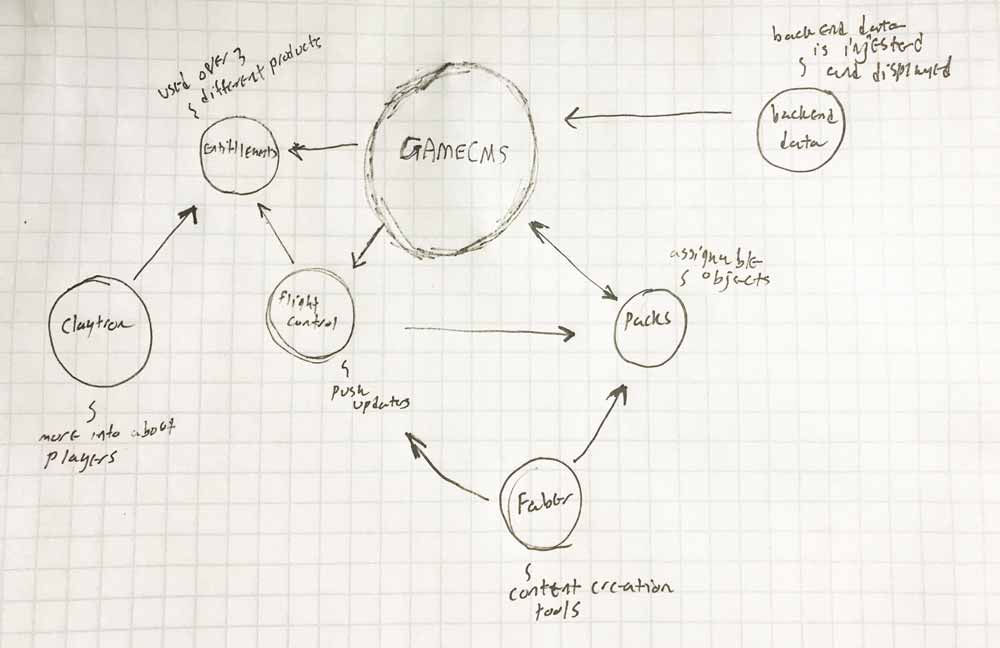 back end data
is ingested
and displayed
used over 3
different products
GAMECMS
backend
data
Entitlements
assignable
objects
Flight
control
Packs
Claytron
push
updates
more info about
players
Faber
content creation
tools